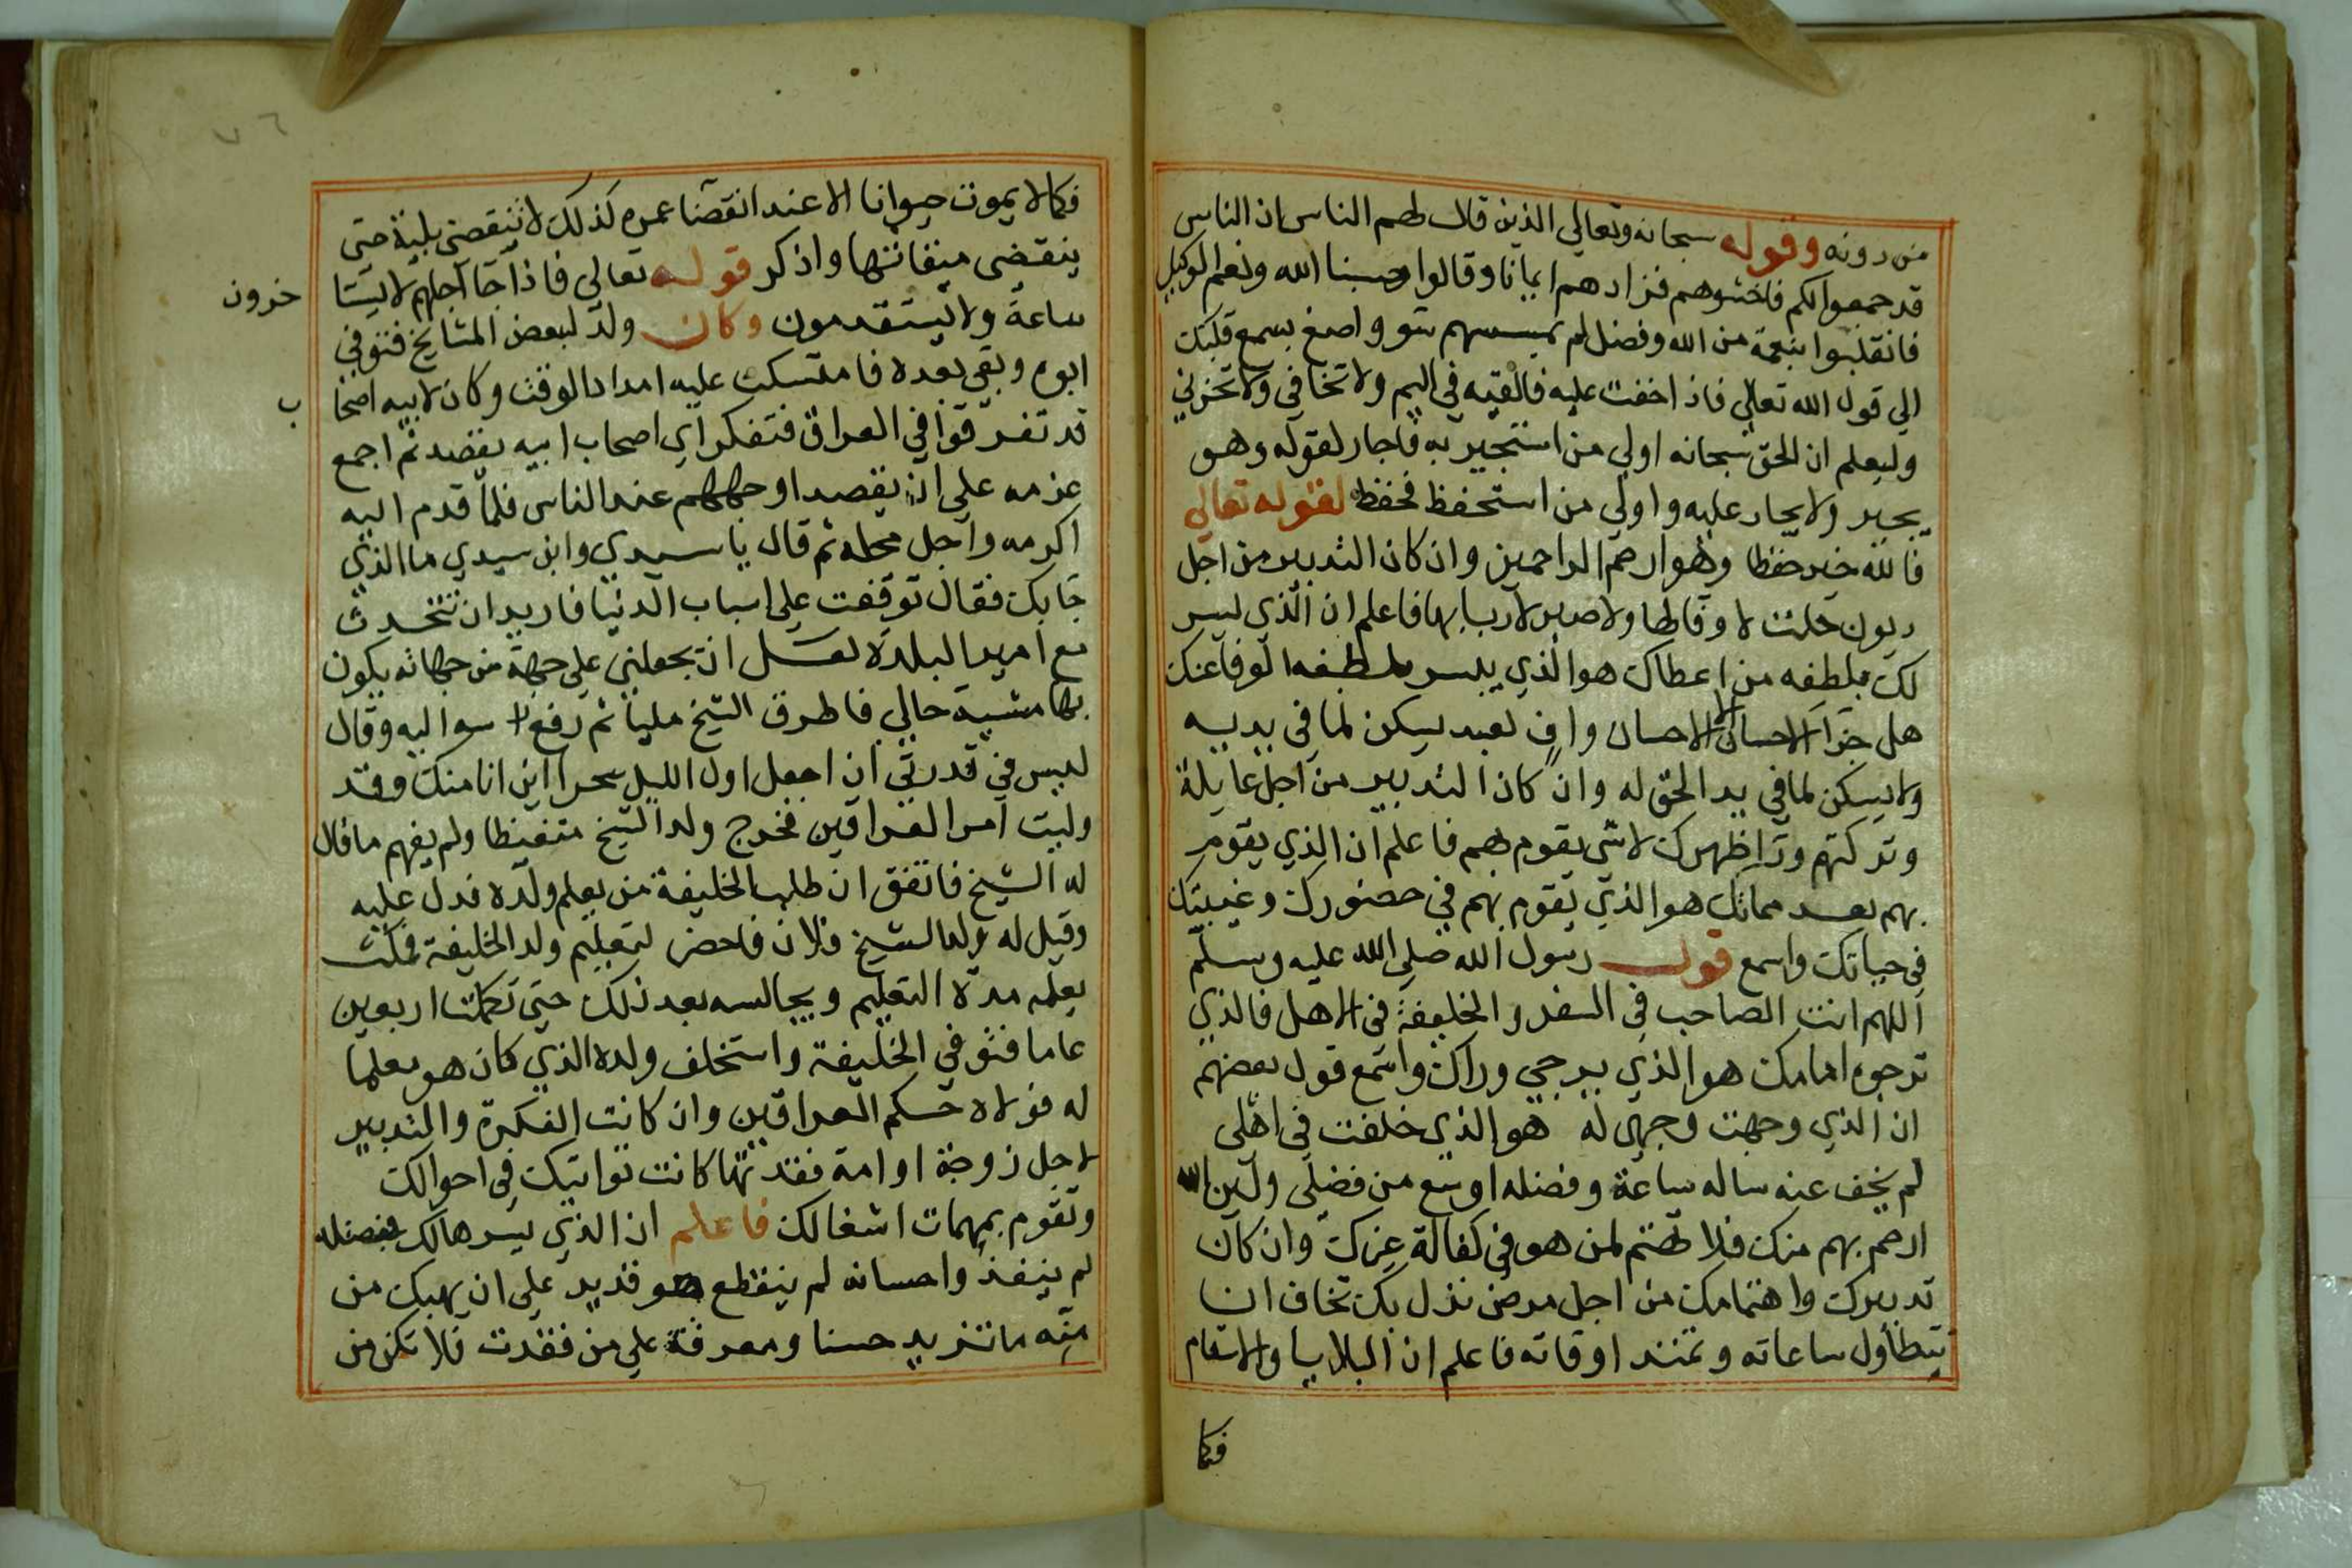 من دونه وقوله سبحانه وتعالي الذين قال لهم الناس ان الناس
قد جمعوا لكم فاخشوهم فزادهم ايمانا وقالوا حسبنا الله ونعم الوكيل
فانقلبوا بنعمة من الله وفضل لم يمسسهم سو واصغ بسمع قلبك
الي قول الله تعالي فاذا خفت عليه فالقيه في اليم ولا تخافي ولا تحزني
وليعلم ان الحق سبحانه اولي من استجير به فاجار لقوله وهو
يجير ولا يجار عليه واولي من استحفظ فحفظ لقوله تعالي
فالله خير حفظا وهو ارحم الراحمين وان كان التدبير من اجل
ديون حلت لا وفا لها ولا صبر لاربابها فاعلم ان الذي يسر
لك بلطفه من اعطاك هو الذي ييسر بلطفه الوفا عنك
هل جزا الاحسان الا الاحسان واف لعبد يسكن لما في يديه
ولا يسكن لما في يد الحق له وان كان التدبير من اجل عايلة
وتركتهم ورا ظهرك لا شي يقوم بهم فاعلم ان الذي يقوم
بهم بعد مماتك هو الذي يقوم بهم في حضورك وغيبتك
في حياتك واسمع قول رسول الله صلي الله عليه وسلم
اللهم انت الصاحب في السفر والخليفة في الاهل فالذي
ترجوه امامك هو الذي يرجي وراك واسمع قول بعضهم
ان الذي وجهت وجهي له هو الذي خلفت في اهلي
لم يخف عنه ساله ساعة وفضله اوسع من فضلي ولين الله
ارحم بهم منك فلا تهتم لمن هو في كفالة غيرك وان كان
تدبيرك واهتمامك من اجل مرض نزل بك تخاف ان
تتطاول ساعاته وتمتد اوقاته فاعلم ان البلايا والاسقام
فكما
٧٦
فكما لا يموت حيوانا الا عند انقضا عمره كذلك لا تنقضي بلية حتي
ينقضي ميقاتها واذكر قوله تعالي فاذا جا اجلهم لا يستا
خرون
ساعة ولا يستقدمون وكان ولد لبعض المشايخ فتوفي
ابوه وبقي بعده فامتسكت عليه امداد الوقت وكان لابيه اصحا
ب
قد تفرقوا في العراق فتفكر اي اصحاب ابيه يقصد ثم اجمع
عزمه علي ان يقصد اوجههم عند الناس فلما قدم اليه
اكرمه واجل محله ثم قال يا سيدي وابن سيدي ما الذي
جا بك فقال توقفت علي اسباب الدنيا فاريد ان تتحدث
مع امير البلدة لعل ان يجعلني علي جهة من جهاته يكون
بها مشية حالي فاطرق الشيخ مليا ثم رفع راسه اليه وقال
ليس في قدرتي ان اجعل اول الليل سحرا اين انا منك وقد
وليت امر العراقين فخرج ولد الشيخ متغيظا ولم يفهم ما قال
له الشيخ فاتفق ان طلب الخليفة من يعلم ولده فدل عليه
وقيل له ولد الشيخ فلان فاحضر لتعليم ولد الخليفة فمكث
يعلمه مدة التعليم ويجالسه بعد ذلك حتي تكملت اربعين
عاما فتوفي الخليفة واستخلف ولده الذي كان هو معلما
له فولاه حكم العراقين وان كانت الفكرة والتدبير
لاجل زوجة او امة فقدتها كانت تواتيك في احوالك
وتقوم بمهمات اشغالك فاعلم ان الذي يسرها لك بفضله
لم ينفذ واحسانه لم ينقطع هو قدير علي ان يهبك من
منه ما تزيد حسنا ومعرفة علي من فقدت فلا تكن من